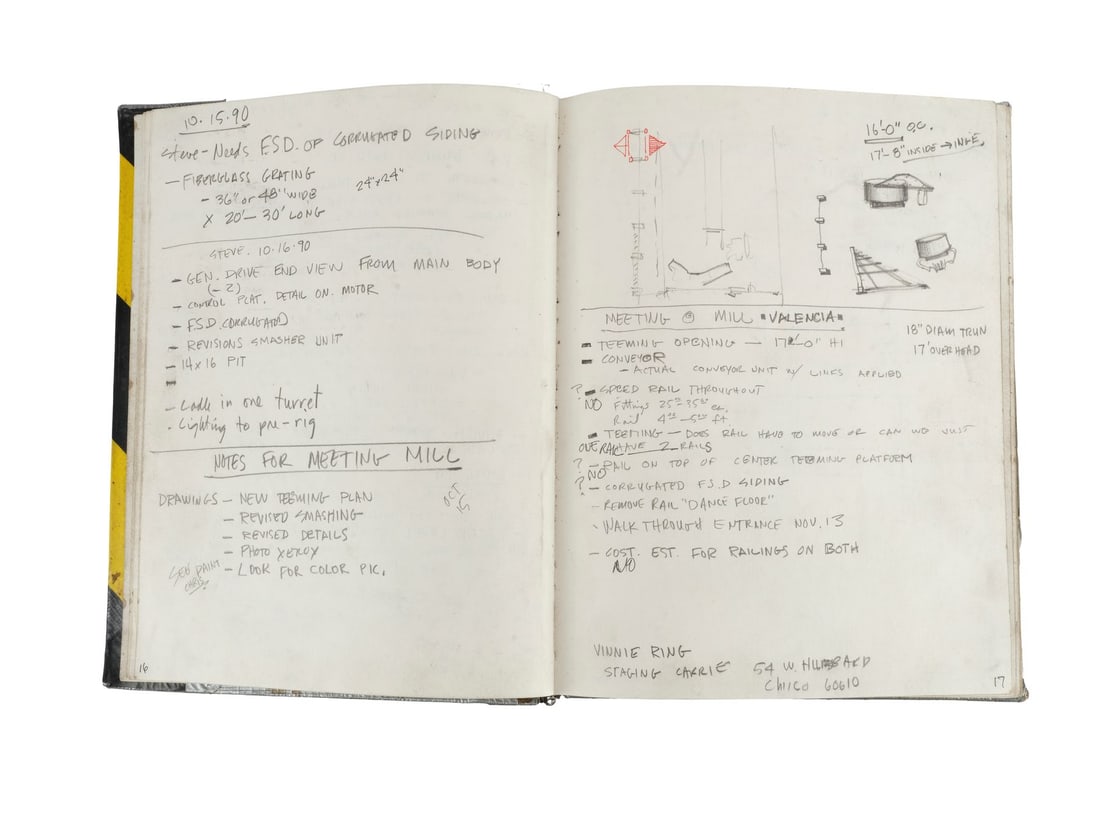 10.15.90
Steve - Needs F.S.D. OF CORRUGATED SIDING
- FIBERGLASS GRATING
24"x24"
- 36" or 48" WIDE
X 20' - 30' LONG
STEVE. 10.16.90
- GEN. DRIVE END VIEW FROM MAIN BODY
(-2)
- CONTROL PLAT. DETAIL ON. MOTOR
- F.S.D. CORRUGATED
- REVISIONS SMASHER UNIT
- 14x16 PIT
- Ladle in one turret
- Lighting to pre-rig
NOTES FOR MEETING MILL
DRAWINGS - NEW TEEMING PLAN
OCT 15
- REVISED SMASHING
- REVISED DETAILS
- PHOTO XEROX
- LOOK FOR COLOR PIC.
PAINT
16
16'-0" O.C.
17'-8" INSIDE →
MEETING @ MILL "VALENCIA"
18" DIAM TRUN
17' OVERHEAD
- TEEMING OPENING - 17'-0" HI
- CONVEYOR
- ACTUAL CONVEYOR UNIT w/ LINKS APPLIED
? - SPEED RAIL THROUGHOUT
NO Fittings 25⁰⁰-35⁰⁰ ea.
Rail 4⁰⁰-5⁰⁰ ft.
- TEEMING - DOES RAIL HAVE TO MOVE OR CAN WE JUST
HAVE 2 RAILS
? - RAIL ON TOP OF CENTER TEEMING PLATFORM
NO
? - CORRUGATED F.S.D SIDING
- REMOVE RAIL "DANCE FLOOR"
- WALK THROUGH ENTRANCE NOV. 13
- COST. EST. FOR RAILINGS ON BOTH
NO
VINNIE RING
STAGING CARRIE 54 W. HUBBARD
60610
17